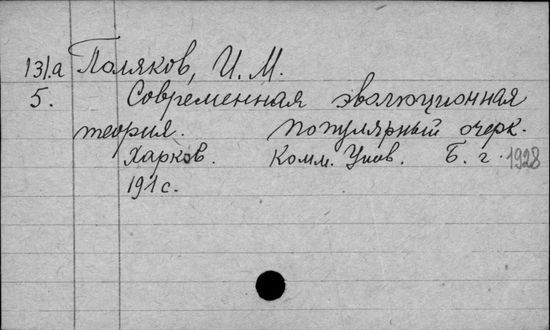 131.а Поляков, И. М.
5. Современная эволюционная
теория. Популярный очерк.
Харков. Комм. Унов. Б. г. 1928
191 с.